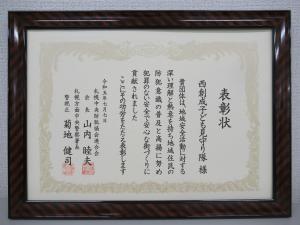 表彰状
西創成子ども見守り隊 様
貴団体は、地域安全活動に対する
深い理解と熱意を持ち地域住民の
防犯意識の普及と高揚に努め
犯罪のない安全で安心な街づくりに
貢献されました
ここにその功労をたたえ表彰します
令和五年七月七日
札幌中央防犯協会連合会
会長 山内 睦夫
札幌方面中央警察署長
警視正 菊地 健司